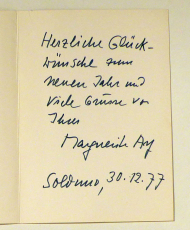 Herzliche Glück-
wünsche zum
neuen Jahr und
viele Grüsse von
Ihrer
Marguerite Arp
Solduno, 30.12.77